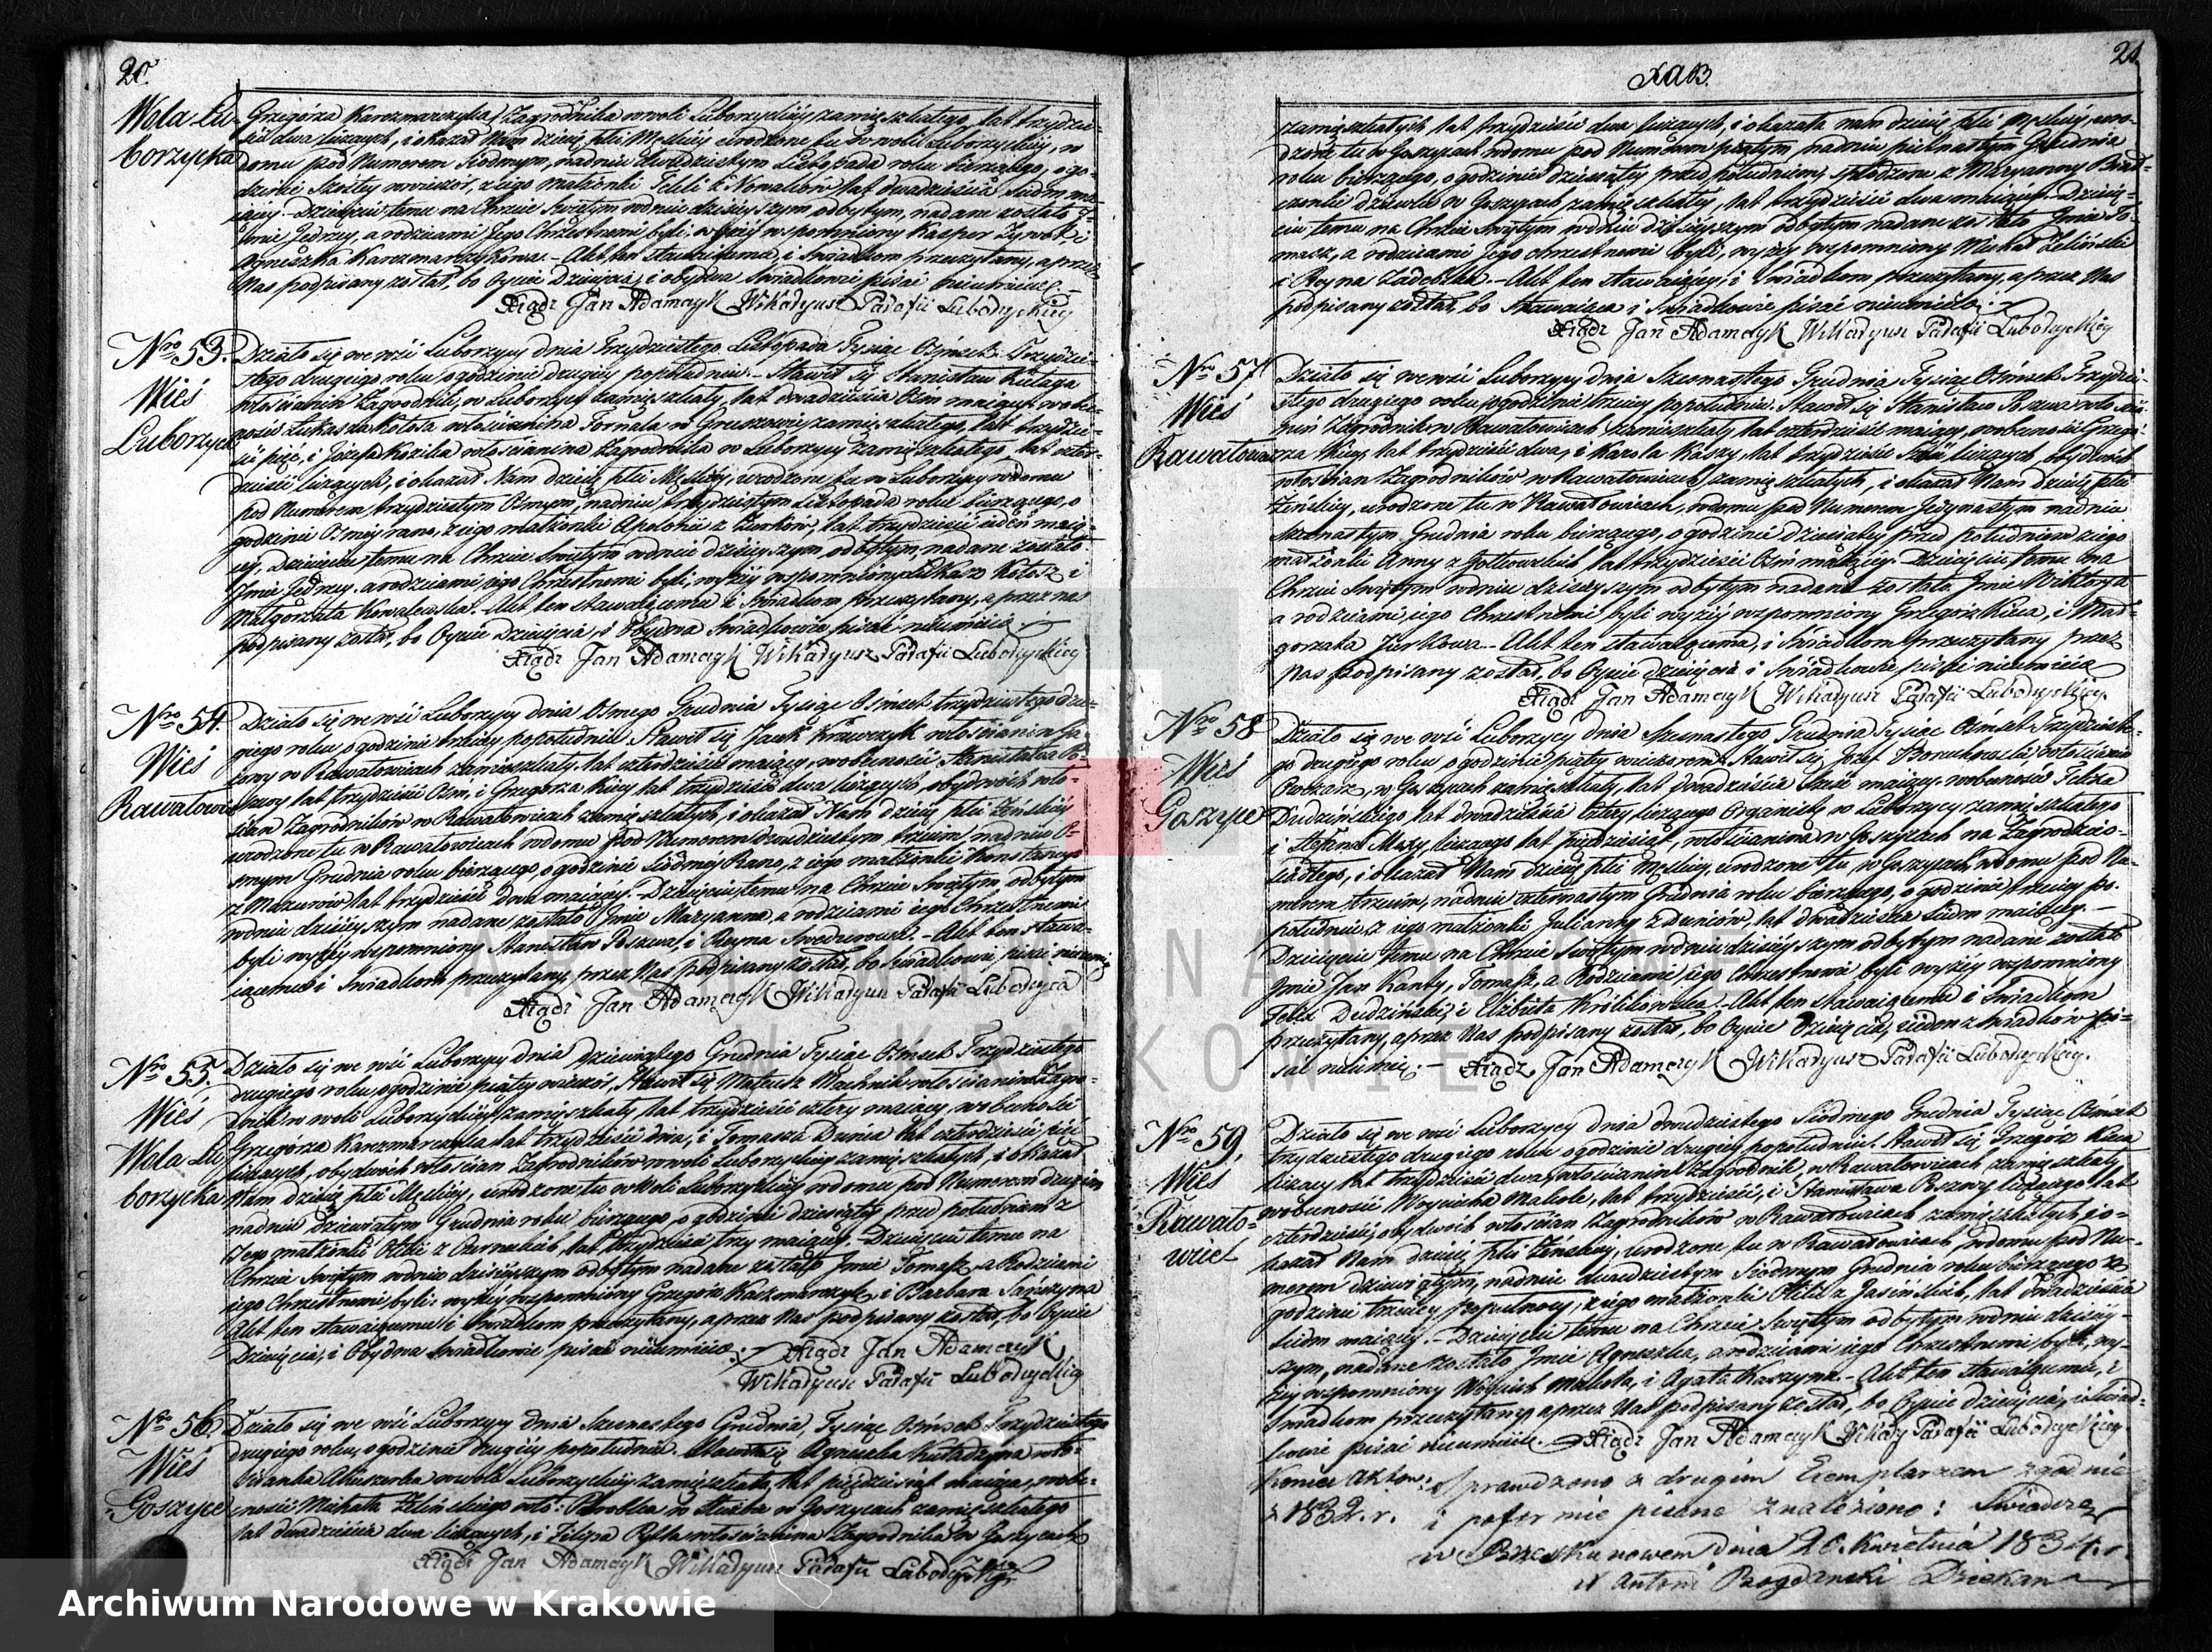 20.
Wola Lu-
borzycka
Grzegórza Karczmarczyka Zagrodnika w woli Luborzyckiey zamieszkałego, lat trzydzie-
ści dwa liczących, i okazał Nam dziecię płci Męskiey urodzone tu w woli Luborzyckiey, w
domu pod Numerem Siodmym, na dniu dwudziestym Listopada roku bieżącego, o go-
dzinie Szóstey wieczór, z iego małżonki Tekli z Nowaków lat dwadzieścia Siedm ma-
iącey. Dziecięciu temu na Chrzcie Swiętym w dniu dzisieyszym odbytym, nadane zostało
Imie Jędrzey, a rodzicami Jego Chrzestnemi byli wyżey wspomniony Kasper Zywot i
Agnieszka Karczmarczykowa. Akt ten Stawaiącemu, i Swiadkom przeczytany, a przez
Nas podpisany został, bo Oyciec Dziecięcia, i obydwa Swiadkowie pisać nieumieią.
Xiądz Jan Adamczyk Wikaryusz Parafii Luborzyckiey
Nro 53.
Wieś
Luborzyca
Działo się we wsi Luborzycy dnia Trzydziestego Listopada Tysiąc Ośmset Trzydzie-
stego drugiego roku o godzinie drugiey popołudniu. Stawił się Stanisław Kułaga
włościanin Zagrodnik, w Luborzycy zamieszkały, lat dwadzieścia Ośm maiący w obe-
cności Łukasza Kołosa włościanina Fornala w Gruszowie zamieszkałego, lat trzydzie-
ści pięć, i Józefa Kozika włościanina Zagrodnika w Luborzycy zamieszkałego, lat czter-
dzieści liczących, i okazał Nam dziecię płci Męskiey, urodzone tu w Luborzycy w domu
pod Numerem trzydziestym Osmym, na dniu trzydziestym Listopada roku bieżącego, o
godzinie Osmey rano, z iego małżonki Apolonii z Żurków, lat trzydzieści ieden maią-
cey. Dziecięciu temu na Chrzcie Swiętym w dniu dzisieyszym, odbytym, nadane zostało
Imie Jędrzey. a rodzicami iego Chrzestnemi byli, wyżey wspomniony Łukasz Kołosz i
Małgorzata Kowalewska. Akt ten stawaiącemu i Swiadkom przeczytany, a przez nas
podpisany został, bo Oyciec Dziecięcia, i Obydwa Swiadkowie pisać nieumieią.
Xiądz Jan Adamczyk Wikaryusz Parafii Luborzyckiey
Nro 54.
Wieś
Rawałowice
Działo się we wsi Luborzycy dnia Osmego Grudnia Tysiąc Ośmset trzydziestego dru-
giego roku o godzinie trzeciey popołudniu. Stawił się Jacek Krawczyk włościanin
w Rawałowicach zamieszkały, lat czterdzieści maiący, w obecności Stanisława Po-
szwy lat trzydzieści Ośm, i Grzegórza Kicy lat trzydzieści dwa liczących, obydwóch wło-
ścian Zagrodników w Rawałowicach zamieszkałych, i okazał Nam dziecię płci Żeńskiey
urodzone tu w Rawałowicach w domu pod Numerem dwudziestym trzecim, na dniu O-
smym Grudnia roku bieżącego, o godzinie Siódmey Rano, z iego małżonki Konstancyi
z Mazurów lat trzydzieści Dwa maiącey. Dziecięciu temu na Chrzcie Swiętym, odbytym
w dniu dzisieyszym nadane zostało Imie Maryanna, a rodzicami iego Chrzestnemi
byli wyżey wspomniony Stanisław Poszwa, i Reyna Swederowa. Akt ten Stawa-
iącemu i Swiadkom przeczytany, przez Nas podpisany został, bo Swiadkowie pisać nieumieią
Xiądz Jan Adamczyk Wikaryusz Parafii Luborzyca
Nro 55.
Wieś
Wola Lu-
borzycka
Działo się we wsi Luborzycy dnia Dziewiątego Grudnia Tysiąc Ośmset Trzydziestego
drugiego roku, o godzinie piątey wieczór, Stawił się Mateusz Machnik włościanin Zagro-
dnik w woli Luborzyckiey zamieszkały lat trzydzieści cztery maiący, w obecności
Grzegórza Karczmarczyka lat trzydzieści dwa, i Tomasza Dunia lat czterdzieści pięć
liczących, obydwóch włościan Zagrodników w woli Luborzyckiey zamieszkałych, i okazał
Nam dziecię płci Męskiey, urodzone tu w Woli Luborzyckiey w domu pod Numerem drugim
na dniu Dziewiątym Grudnia roku bieżącego, o godzinie dziewiątey przed południem z
Jego małżonki Otilii z Czerneckich, lat trzydzieści trzy maiącey. Dziecięciu temu na
Chrzcie Swiętym w dniu dzisieyszym odbytym nadane zostało Imie Tomasz, a Rodzicami
iego Chrzestnemi byli: wyżey wspomniony Grzegórz Karczmarczyk, i Barbara
Akt ten stawaiącemu i Swiadkom przeczytany, a przez Nas podpisany został, bo Oyciec
Dziecięcia, i Obydwa Swiadkowie pisać nieumieią. Xiądz Jan Adamczyk
Wikaryusz Parafii Luborzyckiey
Nro 56.
Wieś
Goszyce
Działo się we wsi Luborzycy dnia Szesnastego Grudnia, Tysiąc Ośmset Trzydziestego
drugiego roku, o godzinie drugiey popołudniu. Stawiła się Agnieszka wło-
ścianka Akuszerka w woli Luborzyckiey zamieszkała, lat pięćdziesiąt maiąca, w obe-
cności Michała Zelińskiego wło: Parobka w służbie w Goszycach zamieszkałego
lat dwadzieścia dwa liczących, i Filipa włościanina Zagrodnika w Goszycach
Xiądz Jan Adamczyk Wikaryusz Parafii Luborzyckiey
21.
zamieszkałych, lat trzydzieści dwa liczących, i okazała nam dziecię płci Męskiey, uro-
dzone tu w Goszycach w domu pod Numerem piątym, na dniu piętnastym Grudnia
roku bieżącego, o godzinie dziesiątey przed południem, spłodzone z Maryanny
dziewki w Goszycach zamieszkałey, lat trzydzieści dwa maiącey. Dziecię-
ciu temu na Chrzcie Swiętym w dniu dzisieyszym odbytym nadane zostało Imie To-
masz, a rodzicami Jego chrzestnemi byli, wyżey wspomniony Michał Zeliński
i Reyna Akt ten stawaiącey, i Swiadkom przeczytany, a przez Nas
podpisany został, bo Stawaiąca i Swiadkowie pisać nieumieią.
Xiądz Jan Adamczyk Wikaryusz Parafii Luborzyckiey
Nro 57
Wieś
Rawałowice
Działo się we wsi Luborzycy dnia Szesnastego Grudnia Tysiąc Ośmset Trzydzie-
stego drugiego roku, o godzinie trzeciey popołudniu. Stawił się Stanisław Poszwa włościa-
nin Zagrodnik w Rawałowicach zamieszkały lat czterdzieści maiący, w obecności Grzegó-
rza Kicy, lat trzydzieści dwa, i Karola Kaszy, lat trzydzieści liczących, obydwóch
włościan Zagrodników w Rawałowicach zamieszkałych, i okazał Nam dziecię płci
Żeńskiey, urodzone tu w Rawałowicach, w domu pod Numerem Jedynastym na dniu
szesnastym Grudnia roku bieżącego, o godzinie dziesiątey przed południem z iego
małżonki Anny z lat trzydzieści Ośm maiącey. Dziecięciu temu na
Chrzcie Swiętym w dniu dzisieyszym odbytym nadane zostało Imie Wiktorya
a rodzicami iego Chrzestnemi byli wyżey wspomniony Grzegórz Kica, i Mał-
gorzata Jurkowa. Akt ten stawaiącemu, i Swiadkom przeczytany przez
Nas podpisany został, bo Oyciec dziecięcia i Swiadkowie pisać nieumieią
Xiądz Jan Adamczyk Wikaryusz Parafii Luborzyckiey.
Nro 58
Wieś
Goszyce
Działo się we wsi Luborzycy dnia Szesnastego Grudnia Tysiąc Ośmset Trzydzieste-
go drugiego roku, o godzinie piątey wieczorem. Stawił się Józef włościanin
Owczarz, w Goszycach zamieszkały, lat dwadzieścia Sześć maiący, w obecności Felixa
Dudzińskiego, lat dwadzieścia Cztery liczącego Organisty, w Luborzycy zamieszkałego
i Stefana liczącego lat pięćdziesiąt, włościanina w Goszycach na Zagrodzie o-
siadłego, i okazał Nam dziecię płci Męskiey, urodzone tu w Goszycach, w domu pod Nu-
merem trzecim, na dniu czternastym Grudnia roku bieżącego, o godzinie trzeciey po
południu, z iego małżonki Julianny z Duniów, lat dwadzieścia Siedm maiącey.
Dziecięciu temu na Chrzcie Swiętym w dniu dzisieyszym odbytym nadane zostało
Imie Jan Kanty, Tomasz, a Rodzicami iego Chrzestnemi byli wyżey wspomniony
Felix Dudziński, i Elżbieta Królikowska. Akt ten stawaiącemu i Swiadkom
przeczytany, a przez Nas podpisany został, bo Oyciec Dziecięcia, i ieden z świadków pi-
sać nieumieią. Xiądz Jan Adamczyk Wikaryusz Parafii Luborzyckiey.
Nro 59.
Wieś
Rawało-
wice
Działo się we wsi Luborzycy dnia dwudziestego Siodmego Grudnia Tysiąc Ośmset
trzydziestego drugiego roku o godzinie drugiey popołudniu. Stawił się Grzegórz Kica
liczący lat trzydzieści dwa, włościanin Zagrodnik, w Rawałowicach zamieszkały
w obecności Woyciecha Małoty, lat trzydzieści, i Stanisława Poszwy liczącego lat
czterdzieści, obydwóch włościan Zagrodników w Rawałowicach zamieszkałych, i o-
kazał Nam dziecię płci Żeńskiey, urodzone tu w Rawałowicach, w domu pod Nu-
merem dziewiątym, na dniu dwudziestym Siodmym Grudnia roku bieżącego o
godzinie trzeciey popułnocy, z iego małżonki Otilii z Jasińskich, lat dwadzieścia
siedm maiącey. Dziecięciu temu na Chrzcie Swiętym odbytym w dniu dzisiey-
szym, nadane zostało Imie Agnieszka, a rodzicami iego Chrzestnemi byli, wy-
żey wspomniony Woyciech Małota, i Agata Kaszyna. Akt ten stawaiącemu, i
Swiadkom przeczytany, a przez Nas podpisany został, bo Oyciec dziecięcia, i Swiad-
kowie pisać nieumieią. Xiądz Jan Adamczyk Wikary Parafii Luborzyckiey
Koniec Aktów:
z 1832. r.
Sprawdzono z drugim Exemplarzem zgodnie
i poformie pisane znaleziono: Swiadczę
w Brzesku nowem dnia 20. Kwietnia 1834. r.
X Antoni Bogdański Dziekan
ARCHIWUM NARODOWE
W KRAKOWIE
Archiwum Narodowe w Krakowie